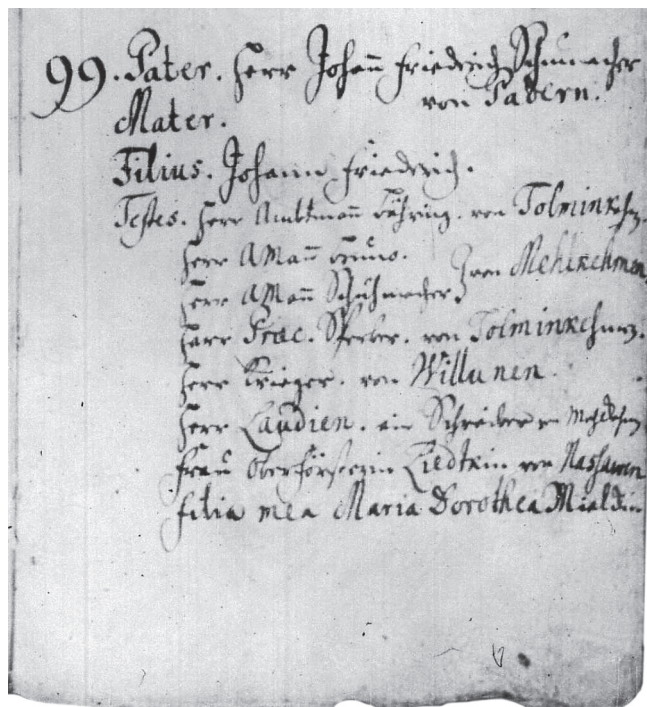 99. Pater. Herr Johann Friedrich Schumacher
von Padern.
Mater.
Filius. Johann Friedrich.
Testes. Herr Ambtmann Böhring. von Tolminkehm.
Herr AMann
Herr AMann Schuhmacher. von Mehlkehmen
Herr Prae. Sperber. von Tolminkehmen.
Herr Krieger. von Willunen.
Herr Laudien. ein Schreiber
Frau Oberförsterin Liedtkin von Nassawen
filia mea Maria Dorothea